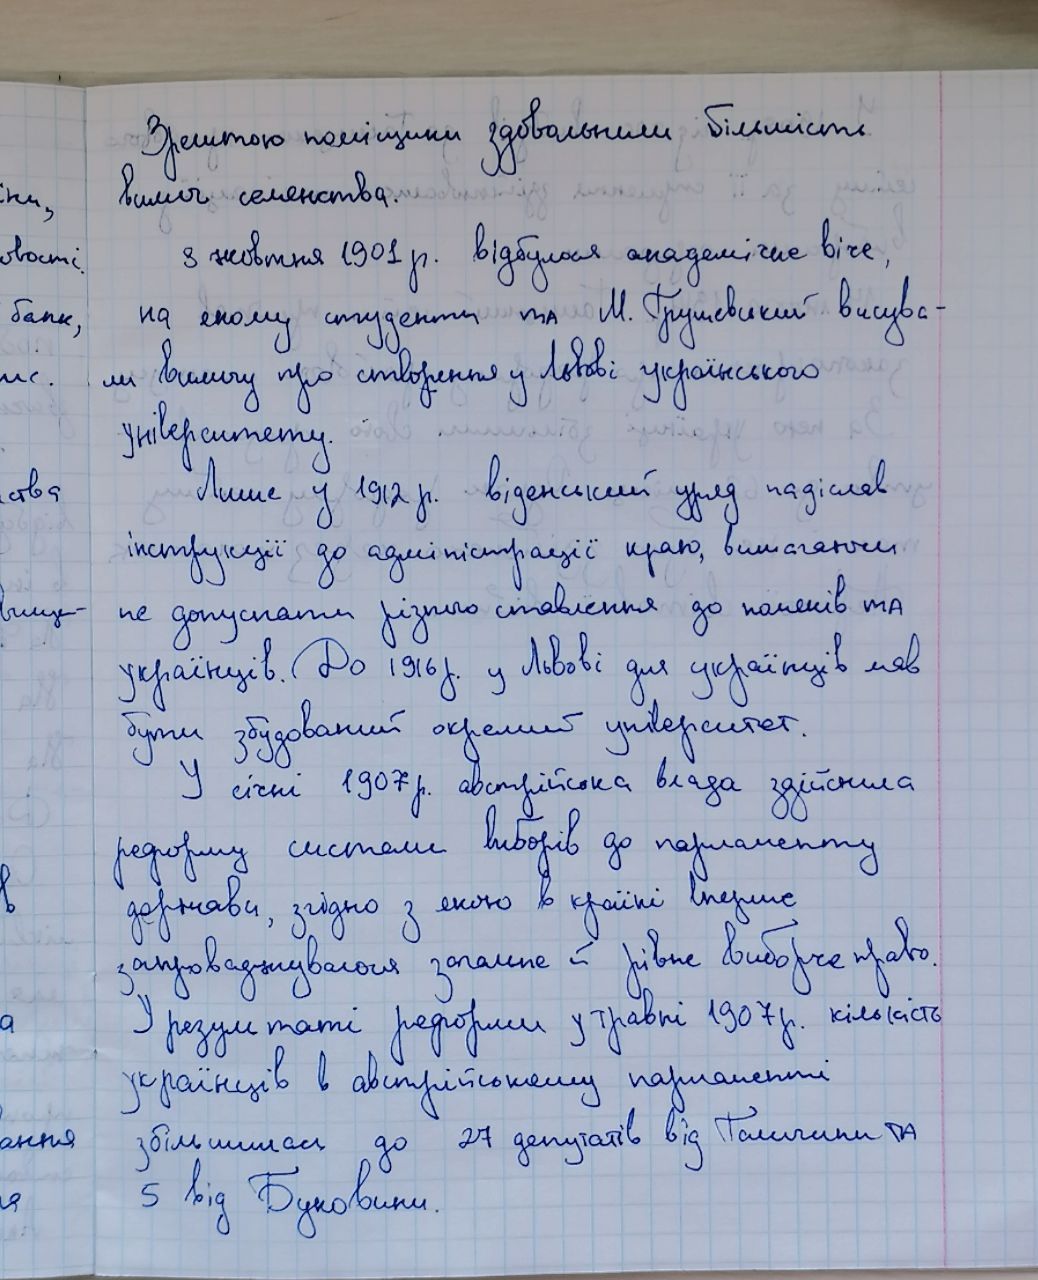 Зрештою поміщики здовольнили більшість
вимог селянства.
3 жовтня 1901 р. відбулося академічне віче,
на якому студенти та М. Грушевський висува-
ли вимогу про створення у Львові українського
університету.
Лише у 1912 р. віденський уряд надіслав
інструкції до адміністрації краю, вимагаючи
не допускати різного ставлення до поляків та
українців. До 1916 р. у Львові для українців мав
бути збудований окремий університет.
У січні 1907 р. австрійська влада здійснила
реформу системи виборів до парламенту
держави, згідно з якою в країні вперше
запроваджувалося загальне й рівне виборче право.
У результаті реформи у травні 1907 р. кількість
українців в австрійському парламенті
збільшилась до 27 депутатів від Галичини та
5 від Буковини.